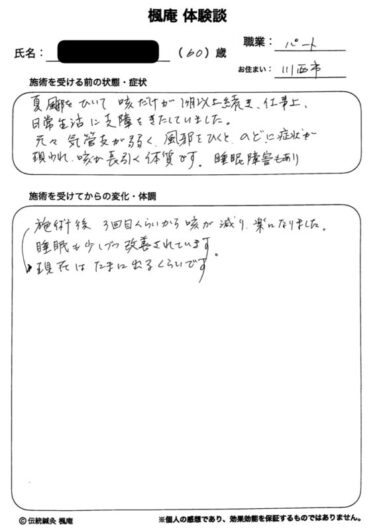 楓庵 体験談
職業: パート
氏名: (60)歳
お住まい: 川西市
施術を受ける前の状態・症状
夏風邪をひいて 咳だけが1ヶ月以上続き、仕事上、
日常生活に支障をきたしていました。
元々気管支が弱く、風邪をひくと、のどに症状が
現われ、咳が長引く体質です。睡眠障害もあり
施術を受けてからの変化・体調
施術後 3回目くらいから咳が減り、楽になりました。
睡眠も少しづつ改善されています。
現在は たまに出るくらいです
© 伝統鍼灸 楓庵
※個人の感想であり、効果効能を保証するものではありません。